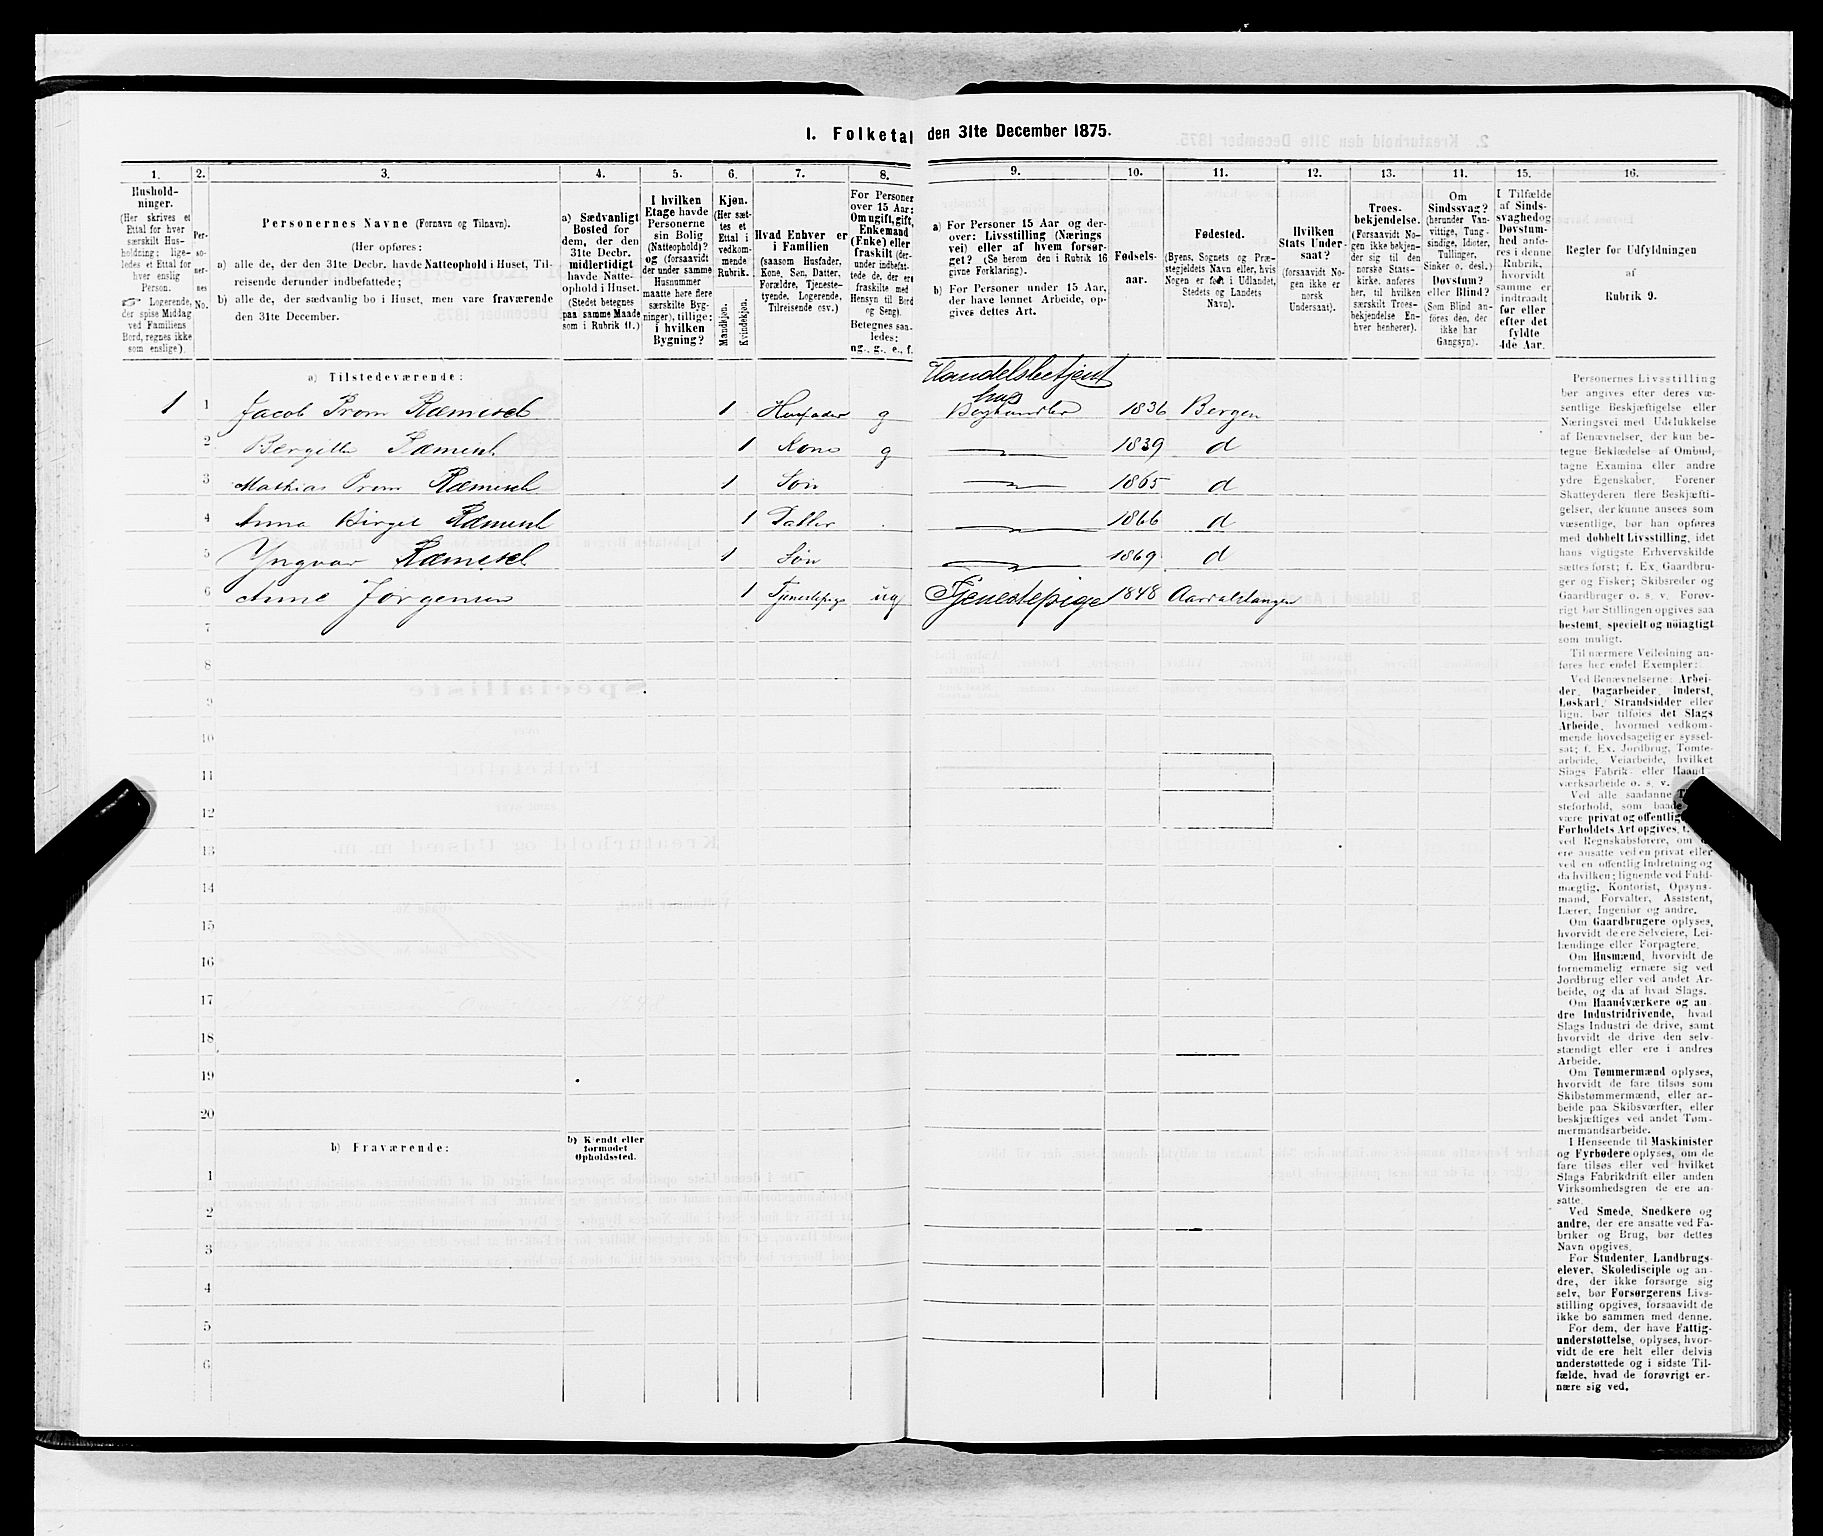 1. Folketal den 31te December 1875.
1.
Hushold-
ninger.
(Her skrives et
Ettal for hver
særskilt Hus-
holdning; lige-
ledes et Ettal for
hver enslig
Person.
Logerende,
der spise Middag
ved Familiens
Bord, regnes ikke
som enslige).
2.
Per-
so-
ner-
nes
No.
3.
Personernes Navne (Fornavn og Tilnavn).
(Her opføres:
a) alle de, der den 31te Decbr. havde Natteophold i Huset, Til-
reisende derunder indbefattede;
b) alle de, der sædvanlig bo i Huset, men vare fraværende
den 31te December.
4.
a) Sædvanligt
Bosted for
dem, der den
31te Decbr.
midlertidigt
havde Natte-
ophold i Huset.
(Stedet betegnes
paa samme Maade
som i Rubrik 11.)
5.
I hvilken
Etage havde
Personerne
sin Bolig
(Natteophold)?
og (forsaavidt
der under samme
Husnummer
maatte høre flere
særskilte Byg-
ninger), tillige:
i hvilken
Bygning?
6.
Kjøn.
(Her sæt-
tes et
Ettal i
vedkom-
mende
Rubrik.
Mandkjøn.
Kvindekjøn.
7.
Hvad Enhver er
i Familien
(saasom Husfader,
Kone, Søn, Datter,
Forældre, Tjeneste-
tyende, Logerende,
Tilreisende osv.)
8.
For Personer
over 15 Aar:
Om ugift, gift,
Enkemand
(Enke) eller
fraskilt (der-
under indbefat-
tede de, der ere
fraskilte med
Hensyn til Bord
og Seng).
Betegnes saa-
ledes:
ug., g., e., f.
9.
a) For Personer 15 Aar og der-
over: Livsstilling (Nærings
vei) eller af hvem forsør-
get? (Se herom den i Rubrik 16
givne Forklaring).
b) For Personer under 15 Aar,
der have lønnet Arbeide, op-
gives dettes Art.
10.
Fødsels-
aar.
11.
Fødested.
(Byens, Sognets og Præ-
stegjeldets Navn eller, hvis
Nogen er født i Udlandet,
Stedets og Landets
Navn).
12.
Hvilken
Stats Under-
saat?
(forsaavidt No-
gen ikke er
norsk
Undersaat).
13.
Troes-
bekjendelse.
(Forsaavidt No-
gen ikke bekjen-
der sig til den
norske Stats-
kirke, anføres
her, til hvilken
særskilt Troes-
bekjendelse En-
hver henhører).
14.
Om
Sindssvag?
(herunder Van-
vittige, Tung-
sindige, Idioter,
Tullinger,
Sinker o. desl.)
Døvstum?
eller Blind?
(Som Blind an-
føres den, der
ikke har
Gangsyn).
15.
I Tilfælde
af Sinds-
svaghed og
Døvstum-
hed anfø-
res i denne
Rubrik,
hvorvidt
samme er
indtraadt
før eller
efter det
fyldte
4de Aar.
16.
Regler for Udfyldningen
af
Rubrik 9.
a) Tilstedeværende:
Handelsbetjent
hus
1 1 Jacob Prom Ræmisch 1 Husfader g Boghandler 1836 Bergen
2 Bergitte Ræmisch 1 Kone g 1839 d
3 Mathias Prom Ræmisch 1 Søn 1865 d
4 Anna Birgit Ræmisch 1 Datter 1866 d
5 Yngvar Ræmisch 1 Søn 1869 d
6 Anne Jørgensen 1 Tjenestepige ug Tjenestepige 1848 Aardalstangen
7
8
9
10
11
12
13
14
15
16
17
18
19
20
b) Fraværende:
b) Kjendt eller
formodet
Opholdssted.
1
2
3
4
5
6
Personernes Livsstilling
bør angives efter deres væ-
sentlige Beskjæftigelse eller
Næringsvei med Udelukkelse
af Benævnelser, der kun be-
tegne Beklædelse af Ombud,
tagne Examina eller andre
ydre Egenskaber. Forener
Skatteyderen flere Beskjæfti-
gelser, der kunne ansees som
væsentlige, bør han opføres
med dobbelt Livsstilling, idet
hans vigtigste Erhvervskilde
sættes først; f. Ex. Gaardbru-
ger og Fisker; Skibsreder og
Gaardbruger o. s. v. Forøv-
rigt bør Stillingen opgives saa
bestemt, specielt og nøiagtigt
som muligt.
Til nærmere Veiledning an-
føres her endel Exempler:
Ved Benævnelserne: Arbei-
der, Dagarbeider, Inderst,
Løskarl, Strandsidder eller
lign. bør tilføies det Slags
Arbeide, hvormed vedkom-
mende hovedsagelig er syssel-
sat; f. Ex. Jordbrug, Tomte-
arbeide, Veiarbeide, hvilket
Slags Fabrik- eller Haand
værksarbeide o. s. v.
Ved alle saadanne
steforhold, som baade
være privat og offentlig
Forholdets Art opgives,
ved Regnskabsførere, om
ere ansatte ved en privat eller
ved en offentlig Indretning og
da hvilken; lignende ved Fuld-
mægtig, Kontorist, Opsyns-
mand, Forvalter, Assistent,
Lærer, Ingeniør og andre.
Om Gaardbrugere oplyses,
hvorvidt de ere Selveiere, Lei-
lændinge eller Forpagtere.
Om Husmænd, hvorvidt de
fornemmelig ernære sig ved
Jordbrug eller ved andet Ar-
beide, og da af hvad Slags.
Om Haandværkere og an
dre Industridrivende, hvad
Slags Industri de drive, samt
hvorvidt de drive den selv-
stændigt eller ere i andres
Arbeide.
Om Tømmermænd oplyses,
hvorvidt de fare tilsøs som
Skibstømmermænd, eller ar-
beide paa Skibsværfter, eller
beskjæftiges ved andet Tøm-
mermandsarbeide.
I Henseende til Maskinister
og Fyrbødere oplyses, om de
fare tilsøs eller ved hvilket
Slags Fabrikdrift eller anden
Virksomhedsgren de ere an-
satte.
Ved Smede, Snedkere og
andre, der ere ansatte ved Fa-
briker og Brug, bør dettes
Navn opgives.
For Studenter, Landbrugs-
elever, Skoledisciple og an-
dre, der ikke forsørge sig
selv, bør Forsørgerens Livs-
stilling opgives, forsaavidt de
ikke bo sammen med denne.
For dem, der have Fattig-
understøttelse, oplyses, hvor-
vidt de ere helt eller delvis
understøttede og i sidste Til-
fælde, hvad de forøvrigt er-
nære sig ved.